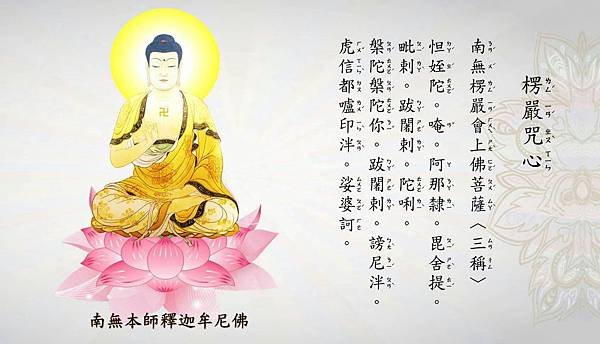 楞嚴咒心
南無楞嚴會上佛菩薩〈三稱〉
怛姪陀。唵。阿那隸。毘舍提。
毗剌。跋闍剌。陀唎。
槃陀槃陀你。跋闍剌。謗尼泮。
虎信都嚧印泮。娑婆訶。
南無本師釋迦牟尼佛